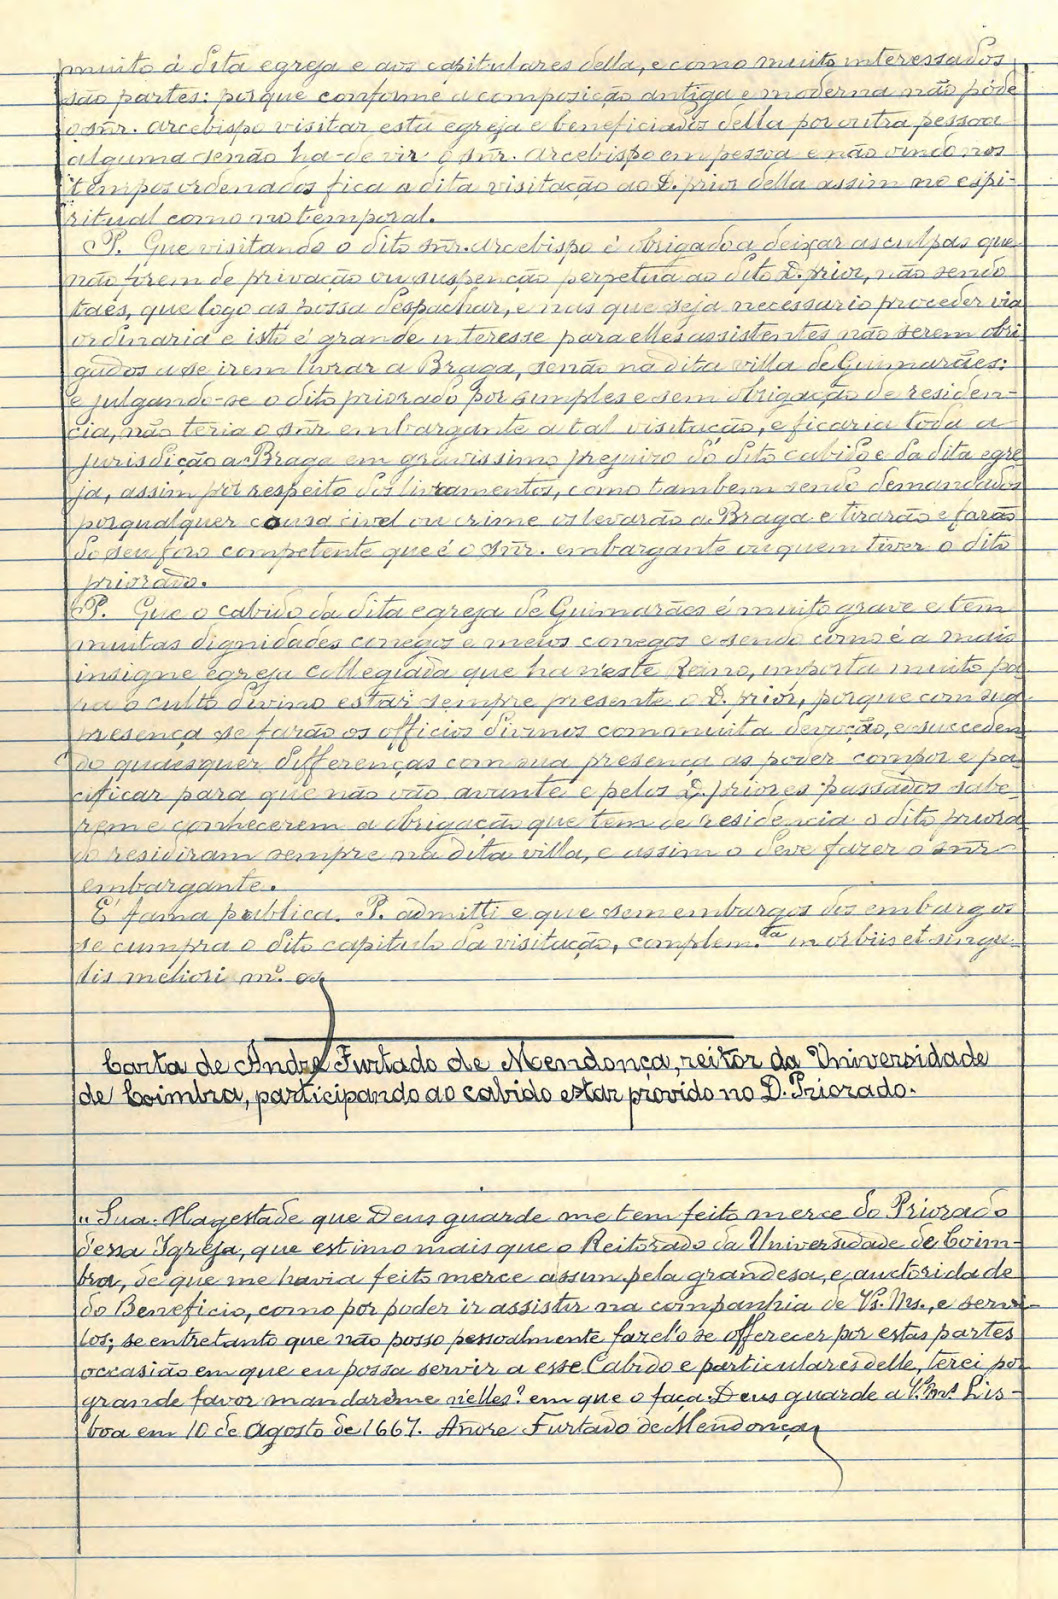 muito á dita egreja e aos capitulares della, e como muito interessados
são partes: porque conforme a composição antiga e moderna não póde
o snr. arcebispo visitar esta egreja e beneficiados della por outra pessoa
alguma senão ha-de vir o snr. arcebispo em pessoa e não vindo nos
tempos ordenados fica a dita visitação ao D. prior della assim no espi-
ritual como no temporal.
P. Que visitando o dito snr. arcebispo é obrigado a deixar as culpas que
não forem de privação ou suspenção perpetua ao dito D. prior, não sendo
taes, que logo as possa despachar, e nas que seja necessario proceder via
ordinaria e isto é grande interesse para elles assistentes não serem obri
gados a se irem livrar a Braga, senão na dita villa de Guimarães:
e julgando-se o dito priorado por simples e sem obrigação de residen-
cia, não teria o snr embargante a tal visitação, e ficaria toda a
jurisdição a Braga em gravissimo prejuizo do dito cabido e da dita egre
ja, assim por respeito dos livramentos, como tambem sendo demandados
por qualquer cousa civel ou crime os levarão a Braga e tirarão e farão
do seu foro competente que é o snr. embargante ou quem tiver o dito
priorado.
P. Que o cabido da dita egreja de Guimarães é muito grave e tem
muitas dignidades conegos e meios conegos e sendo como é a mais
insigne egreja collegiada que ha n'este Reino, importa muito pa
ra o culto divino estar sempre presente o D. prior, porque com sua
presença se farão os officios divinos com muita devoção, e succeden
do quaesquer differenças com sua presença as poder compor e pa
cificar para que não vão avante e pelos D. priores passados sabe-
rem e conhecerem a obrigação que tem de residencia o dito priora
do residiram sempre na dita villa, e assim o deve fazer o snr
embargante.
É fama publica. P. admitti e que sem embargos dos embargos
se cumpra o dito capitulo da visitação, complem.ta in
lis meliori m.º
Carta de André Furtado de Mendonça, reitor da Universidade
de Coimbra, participando ao cabido estar provido no D. Priorado.
"Sua Magestade que Deus guarde me tem feito merce do Priorado
dessa Igreja, que estimo mais que o Reitorado da Universidade de Coim-
bra, de que me havia feito merce assim pela grandesa, e auctoridade
do Beneficio, como por poder ir assistir na companhia de Vs. Ms., e servi-
los; se entretanto que não posso pessoalmente fazel'o se offerecer por estas partes
occasião em que eu possa servir a esse Cabido e particulares delle, terei por
grande favor mandareme n'elles? em que o faça. Deus guarde a V.s M.s Lis-
boa em 10 de Agosto de 1667. Andre Furtado de Mendonça